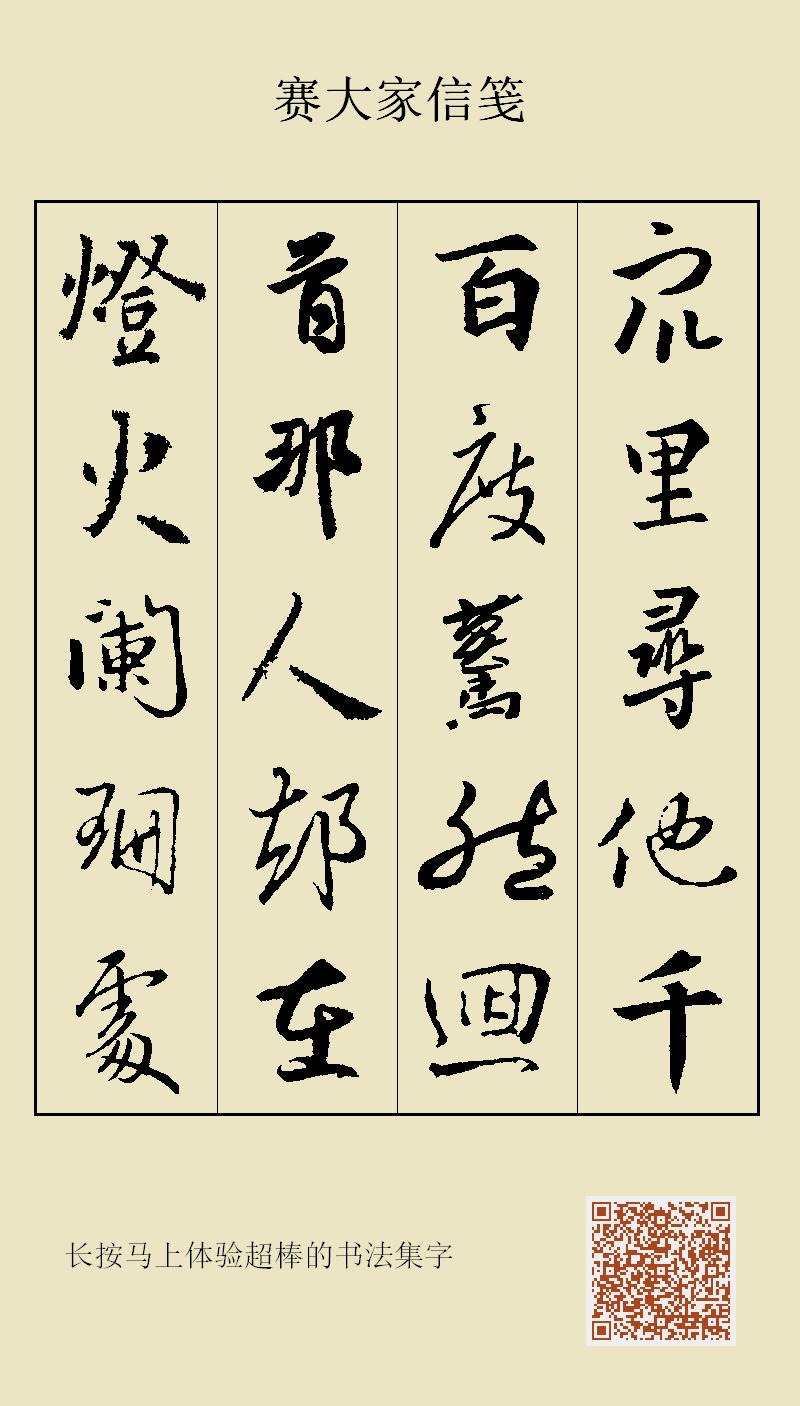 赛大家信笺
众里尋他千
百度驀然迴
首那人却在
燈火阑珊處
长按马上体验超棒的书法集字